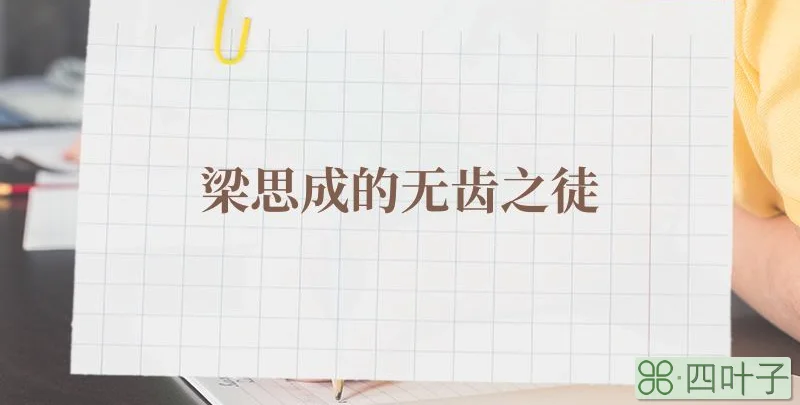 梁思成的无齿之徒
四叶子